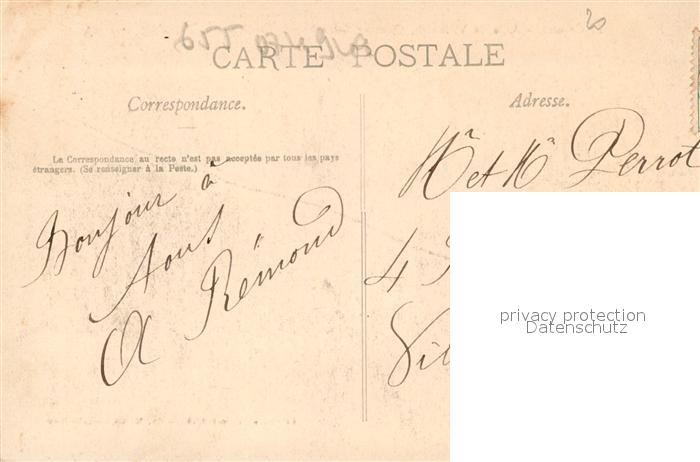 CARTE POSTALE
Correspondance.
La Correspondance au recto n'est pas acceptée par tous les pays
étrangers. (Se renseigner à la Poste.)
Bonjour à
tous
A Rémond
20
Adresse.
Mr et Me Perrot
4
privacy protection
Datenschutz